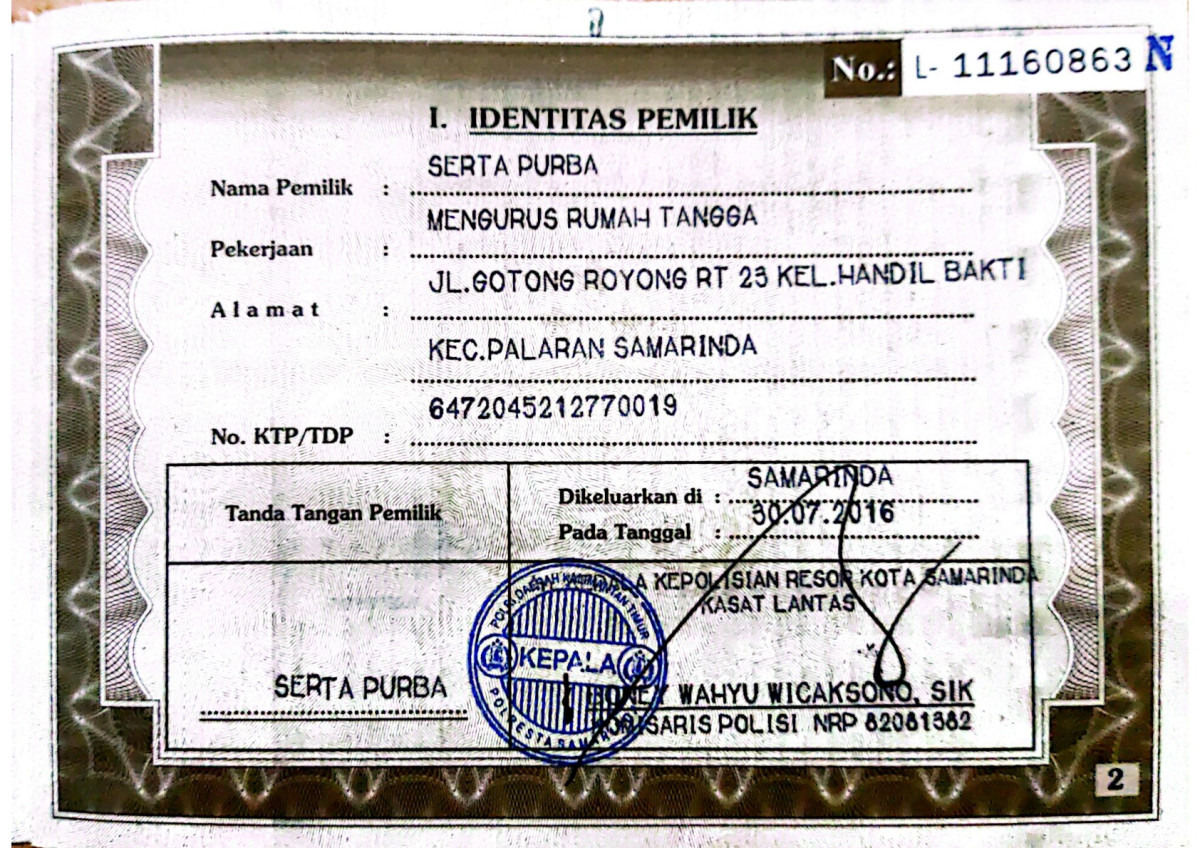 No.: L- 11160863 N
I. IDENTITAS PEMILIK
Nama Pemilik : SERTA PURBA
Pekerjaan : MENGURUS RUMAH TANGGA
Alamat : JL.GOTONG ROYONG RT 23 KEL.HANDIL BAKTI
KEC.PALARAN SAMARINDA
No. KTP/TDP : 6472045212770019
Tanda Tangan Pemilik
Dikeluarkan di : SAMARINDA
Pada Tanggal : 30.07.2016
KEPOLISIAN RESOR KOTA SAMARINDA
KASAT LANTAS
POLRI DAERAH KALIMANTAN TIMUR
KEPALA
POLRESTA SAMARINDA
SERTA PURBA
WAHYU WICAKSONO, SIK
POLISI NRP 82081382
2